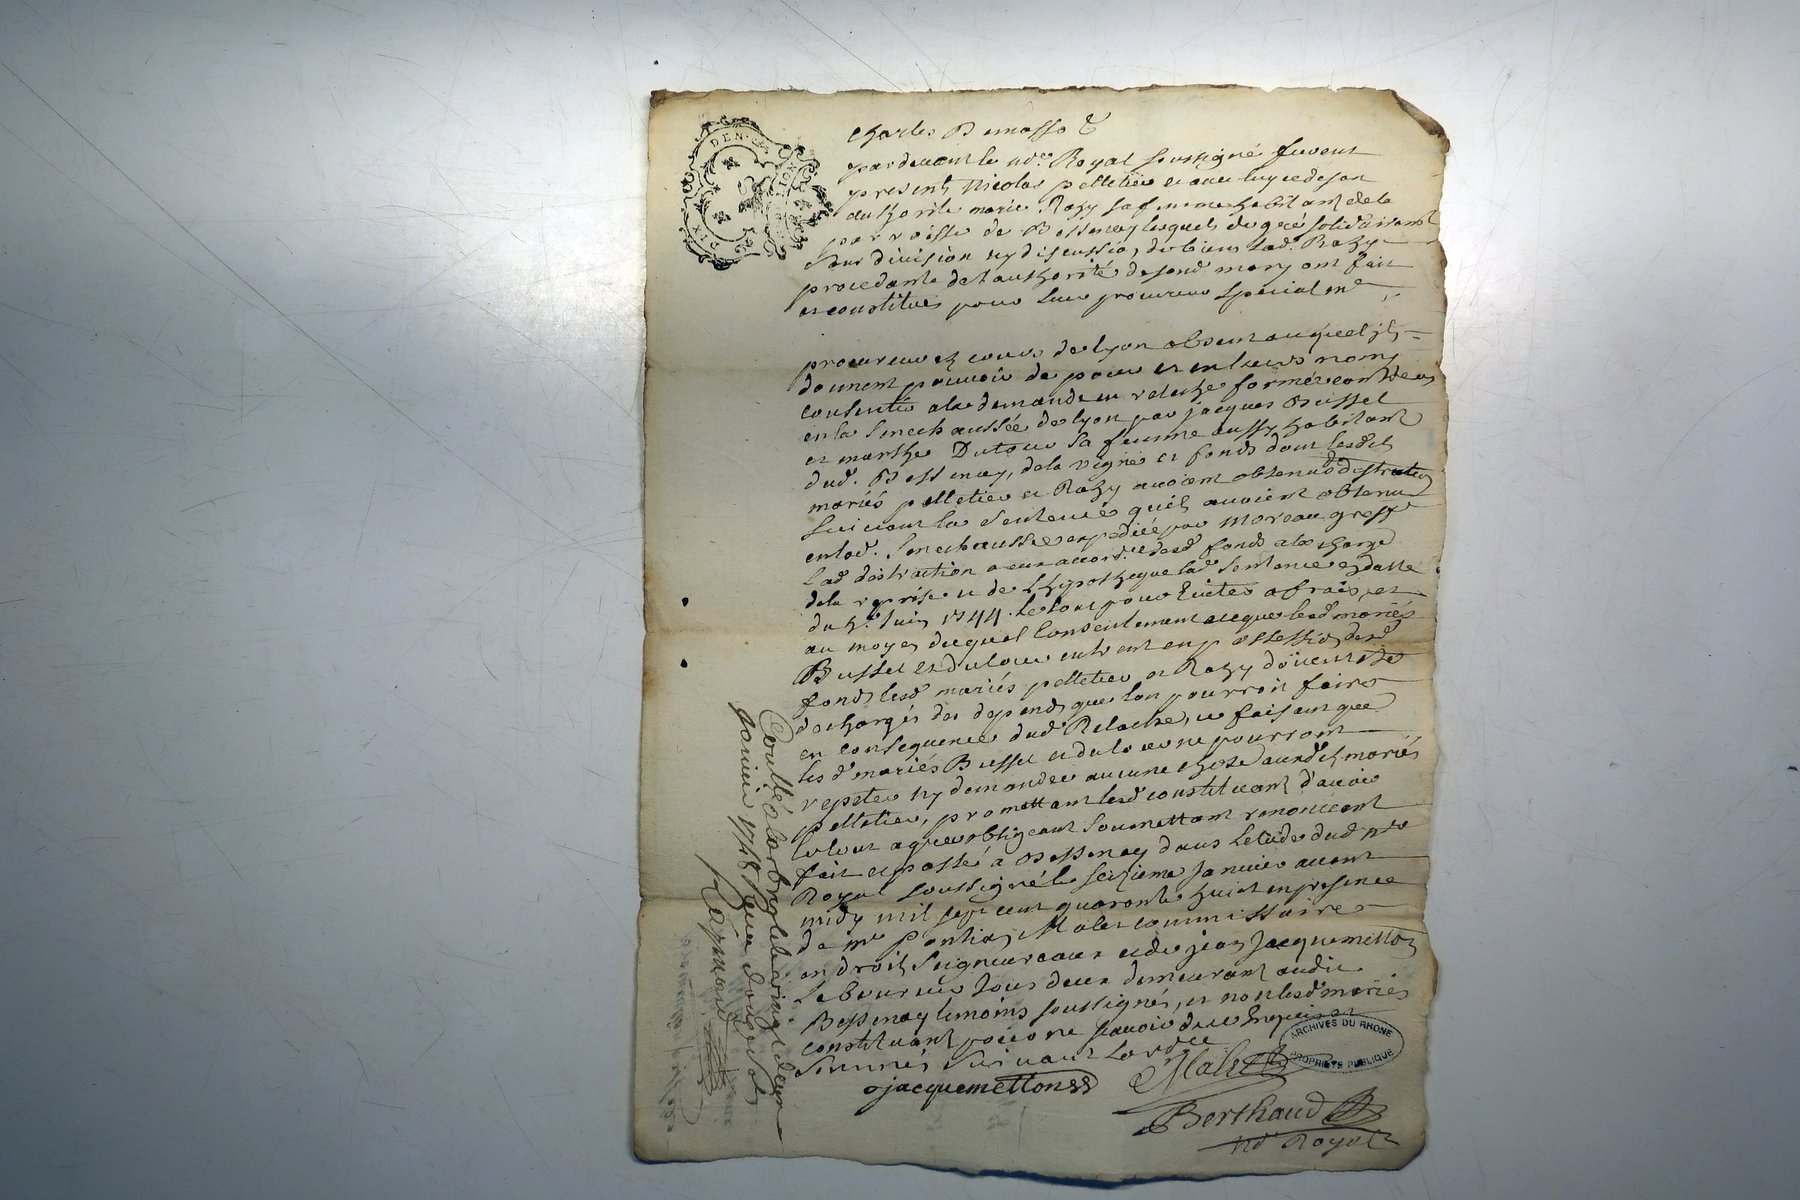 DEN.
DIX
charles
pardevant le nore Royal soussigné furent
presents Nicolas pelletier et avec luy et de son
authorité marie Razy sa femme habitant de la
parroisse de Bessenay lesquels de gré solidairement
sans division ny discussion de biens lad. Razy
procedante de l'authorité de sond mary ont fait
et constitués pour leur procureur special
procureur ez cours de lyon absent auquel ils
donnent pouvoir de pour et en leurs noms
consentir a la demande en relache formée contre eux
en la senechaussée de lyon par jacques Bussel
et marthe Dutour sa femme aussy habitant
dud. Bessenay, de la vigne et fonds dont lesdits
mariés pelletier et Razy avoient obtenu distraction
suivant la sentence qu'ils avoient obtenu
en lad. Senechaussée expediée par Moreau greff
lad distraction a eux accordée desd fonds a la charge
de la reprise et de l'hypotheque lad sentence en datte
du juin 1744. le tout pour eviter a frais, et
au moyen duquel consentement et que lesd mariés
Bussel et dutour entrent en possession desd
fonds lesd mariés pelletier et Razy doivent etre
dechargés des depends que l'on pourroit faire
en consequence dud Relache, ce faisant que
les d mariés Bussel et dutour ne pourront
repeter ny demander aucune chose auxdits mariés
pelletier, promettant lesd constituant d'avoir
le tout agreé obligeant soumettant renonceant
fait et passé a Bessenay dans l'etude dud nre
Royal soussigné le seizieme Janvier avant
midy mil sept cent quarante huit en presence
de me Malet commissaire
en droits seigneuriaux et de jean Jacquemetton
laboureur tous deux demeurant audit
Bessenay temoins soussignés, et non lesd mariés
constituant pour ne sçavoir de ce enquis et
sommés suivant l'ordce
jacquemetton
Malet
Berthaud
no Royal
ARCHIVES DU RHONE
PROPRIETE PUBLIQUE
Conllé a larbresle le vingt deux
janvier 1748 Receu douze sols
Raymond